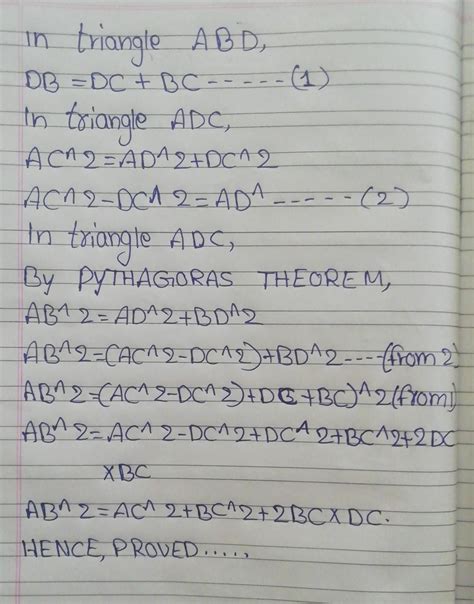 In triangle ABD,
DB = DC + BC -----(1)
In triangle ADC,
AC^2=AD^2+DC^2
AC^2-DC^2=AD^-----(2)
In triangle ADC,
By PYTHAGORAS THEOREM,
AB^2=AD^2+BD^2
AB^2=(AC^2-DC^2)+BD^2----(from 2)
AB^2=(AC^2-DC^2)+DC+BC)^2(from1)
AB^2=AC^2-DC^2+DC^2+BC^2+2DC
×BC
AB^2=AC^2+BC^2+2BC×DC.
HENCE, PROVED.....